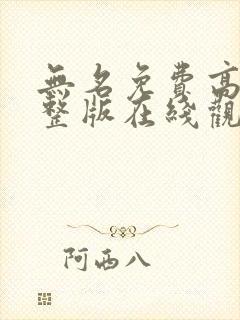 無名免費高
整版在綫觀
阿西八